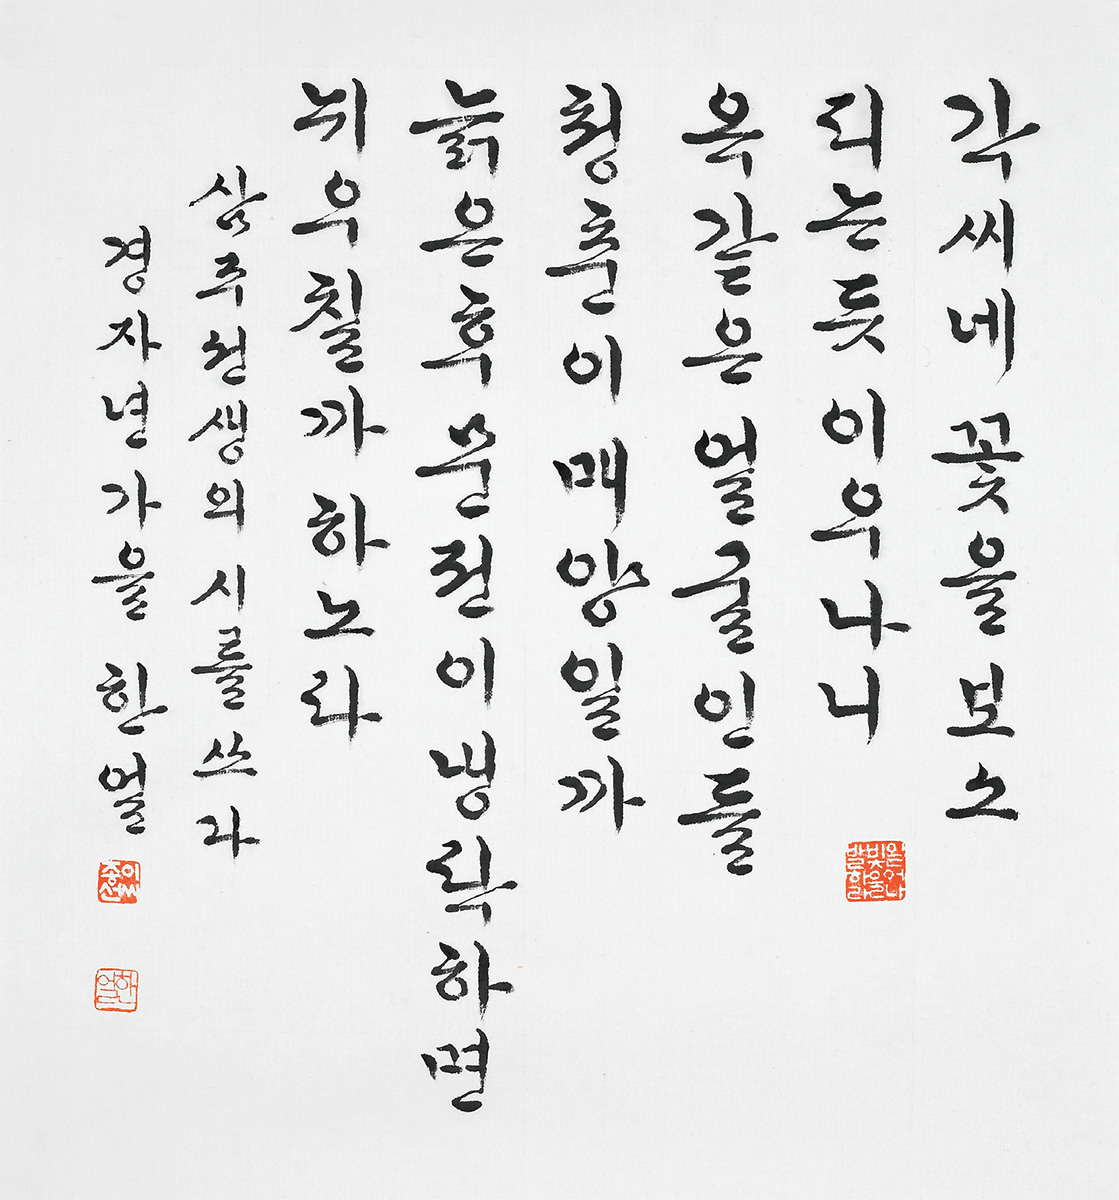 각씨네 꽃을 보소
피는듯 이우나니
옥같은 얼굴인들
청춘이 매양일까
늙은 후 문전이 냉락하면
뉘우칠까 하노라
삼주선생의 시를 쓰다
경자년 가을 한얼
일어나 빛을 발하라
한얼